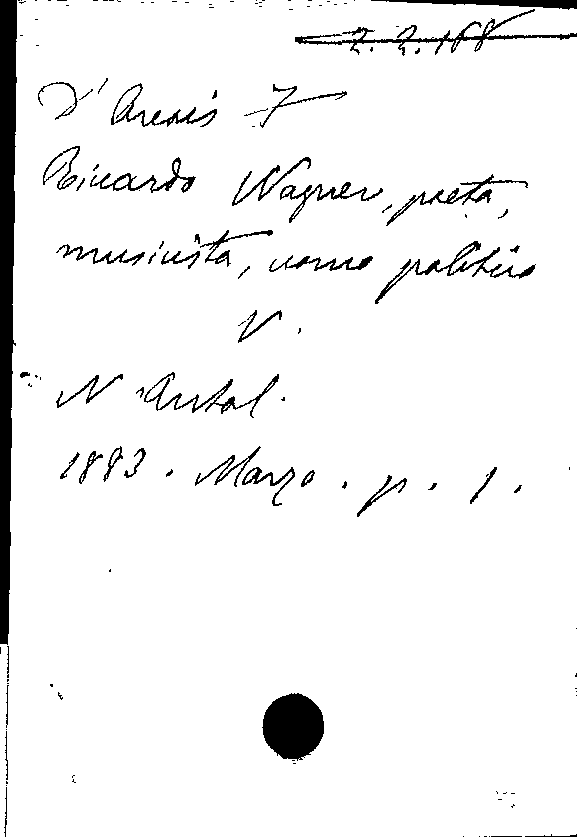 2.2.168
D'Arcais F
Riccardo Wagner, poeta,
musicista, uomo politico
V.
N Antol.
1883. Marzo. p. 1.